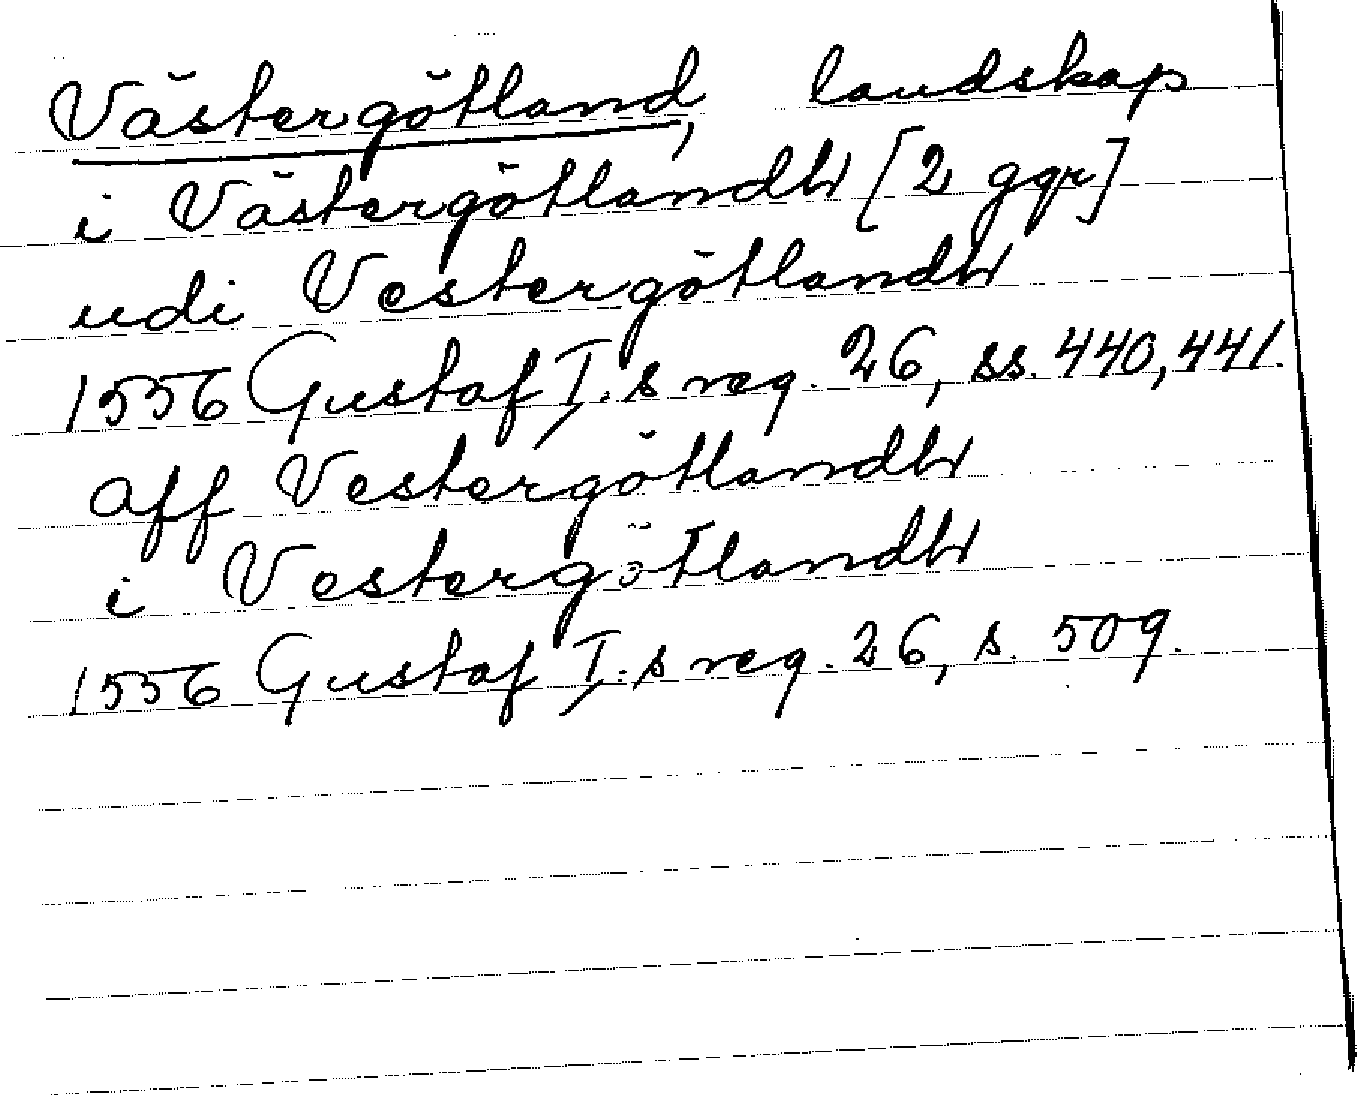 Västergötland, landskap
i Västergötlandh [2 ggr]
udi Vestergötlandh
1556 Gustaf I.s reg. 26, ss. 440, 441.
aff Vestergötlandh
i Vestergötlandh
1556 Gustaf I.s reg. 26, s. 509.